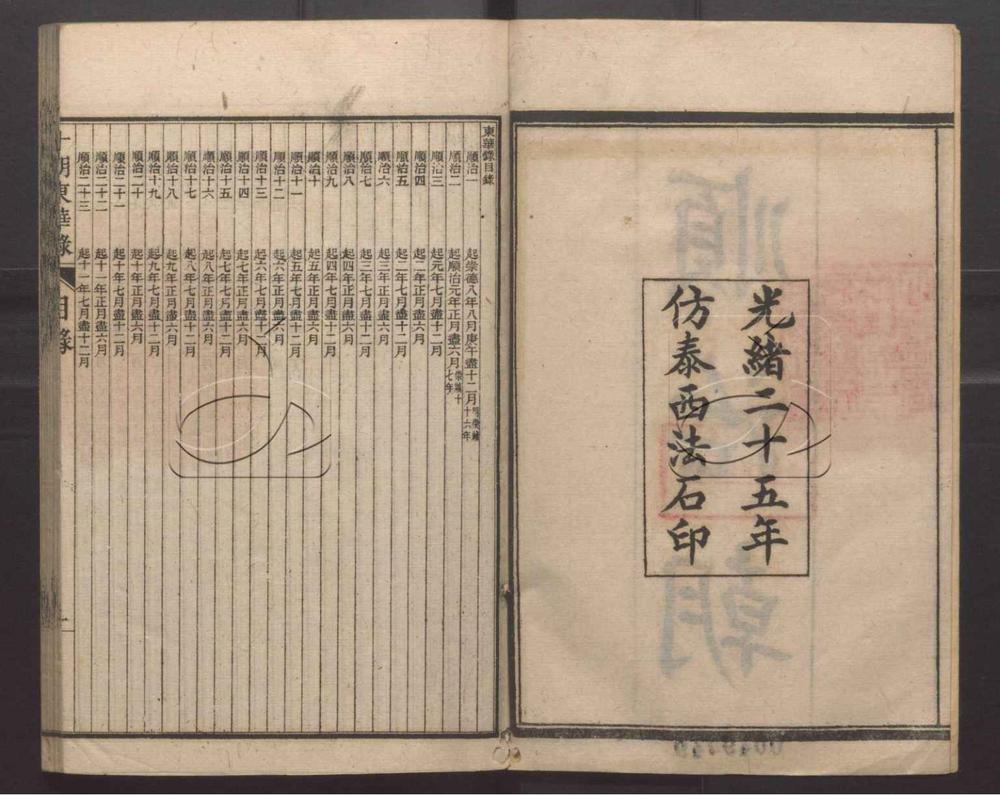 光緒二十五年
仿泰西法石印
東華錄目錄
順治一 起崇德八年八月庚午盡十二月明崇禎十六年
順治二 起順治元年正月盡六月崇禎十七年
順治三 起元年七月盡十二月
順治四 起二年正月盡六月
順治五 起二年七月盡十二月
順治六 起三年正月盡六月
順治七 起三年七月盡十二月
順治八 起四年正月盡六月
順治九 起四年七月盡十二月
順治十 起五年正月盡六月
順治十一 起五年七月盡十二月
順治十二 起六年正月盡六月
順治十三 起六年七月盡十二月
順治十四 起七年正月盡六月
順治十五 起七年七月盡十二月
順治十六 起八年正月盡六月
順治十七 起八年七月盡十二月
順治十八 起九年正月盡六月
順治十九 起九年七月盡十二月
順治二十 起十年正月盡六月
順治二十一 起十年七月盡十二月
順治二十二 起十一年正月盡六月
順治二十三 起十一年七月盡十二月
十朝東華錄 目錄 一